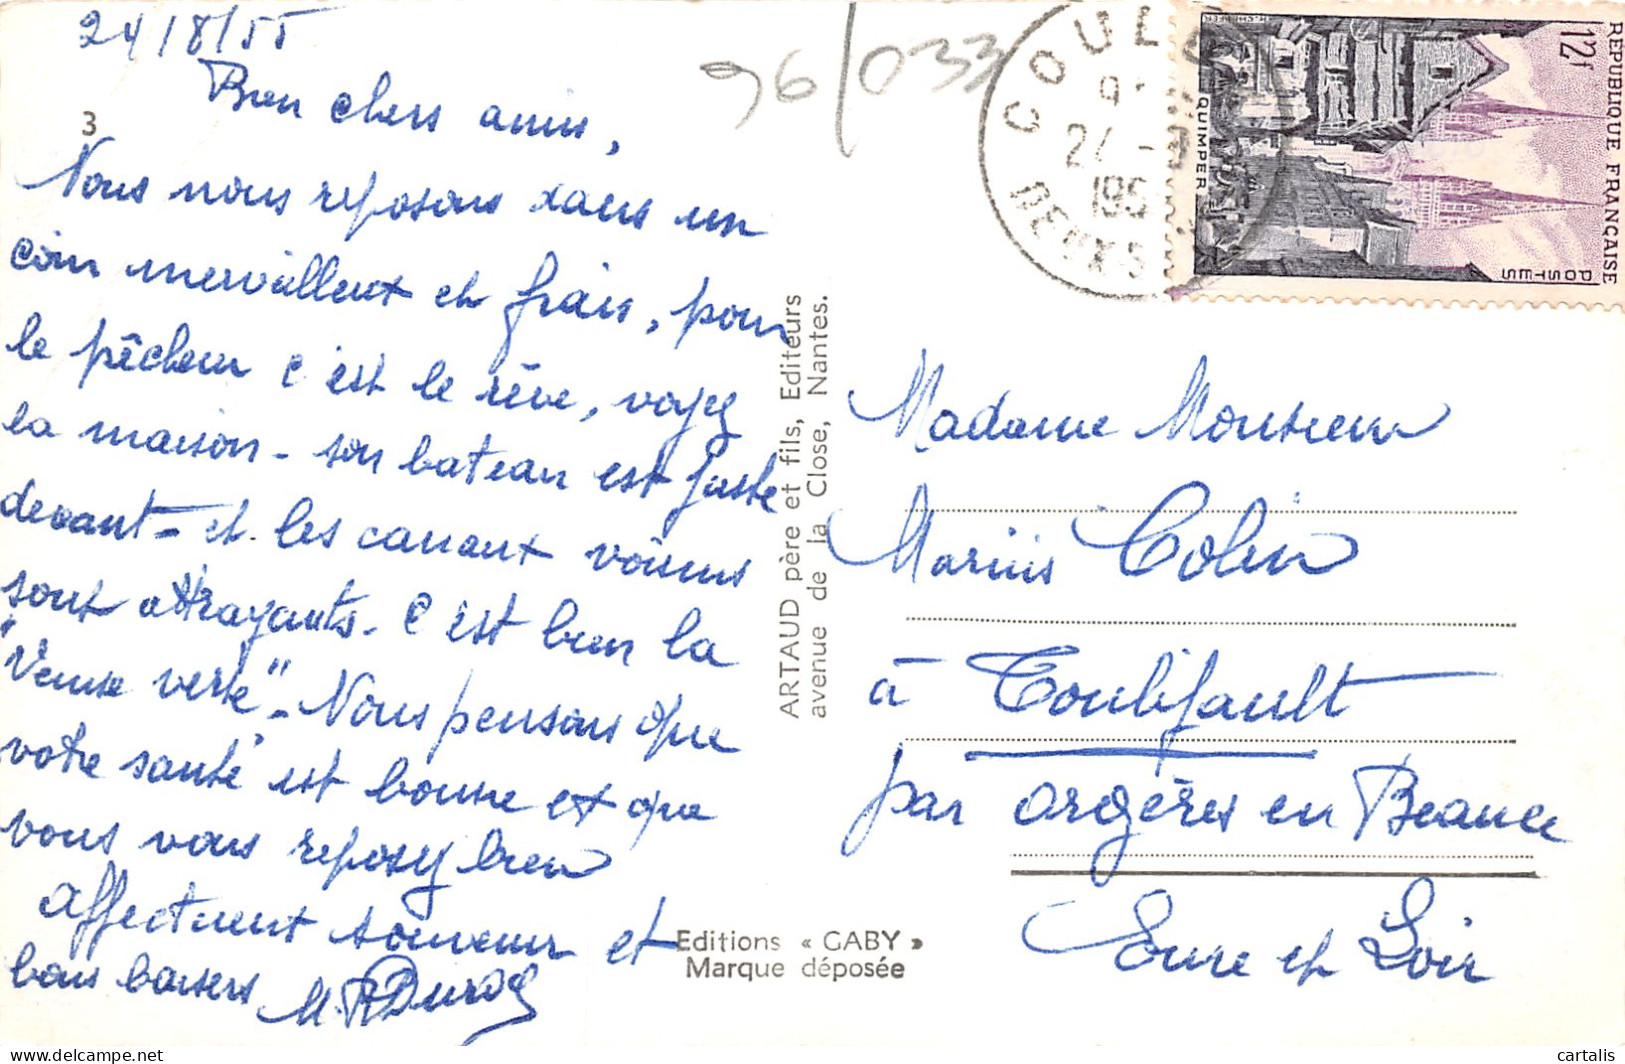 24/8/55
96/033
Bien chers amis,
3
Nous nous reposons dans un
coin merveilleux et frais, pour
le pêcheur c'est le rêve, voyez
la maison - son bateau est juste
devant - et les canaux voisins
sont attrayants. C'est bien la
"Venise verte" - Nous pensons que
votre santé est bonne et que
vous vous reposez bien
affectueux souvenir et
bons baisers
ARTAUD père et fils, Editeurs
avenue de la Close, Nantes.
Editions « GABY »
Marque déposée
COUL
24 - 8
195
DEUX-S
RÉPUBLIQUE FRANÇAISE
12f
POSTES
QUIMPER
Madame Monsieur
Marius Colin
à Toulifault
par Orgères en Beauce
Eure et Loir
cartalis